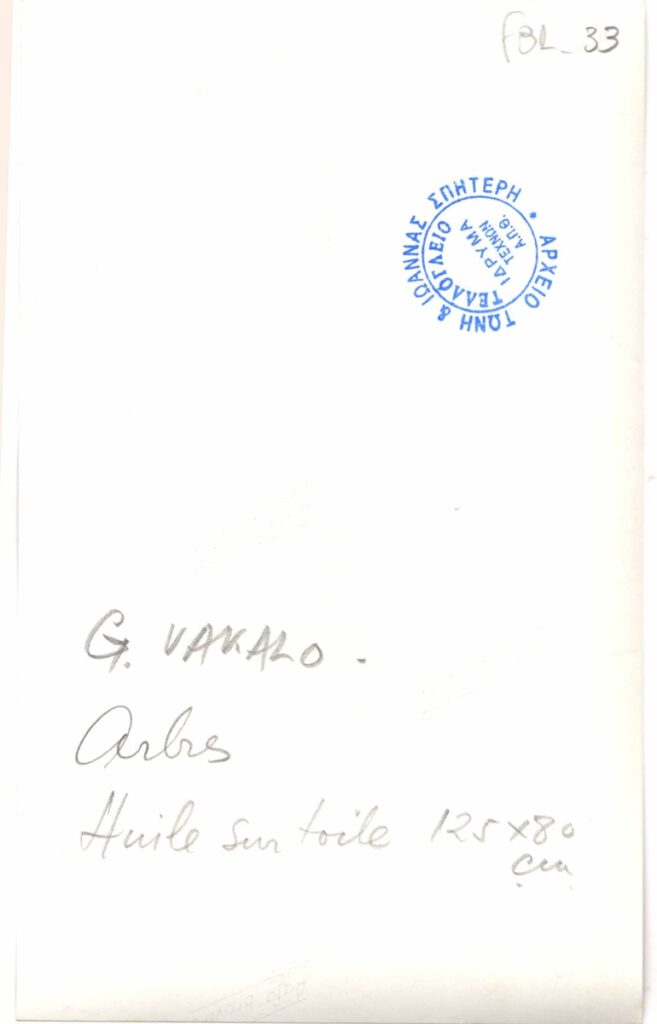 FBL_33
ΑΡΧΕΙΟ ΤΩΝΗ & ΙΩΑΝΝΑΣ ΣΠΗΤΕΡΗ *
ΤΕΛΛΟΓΛΕΙΟ
ΙΔΡΥΜΑ
ΤΕΧΝΩΝ
Α.Π.Θ.
G. VAKALO -
Arbres
Huile sur toile 125x80
cm